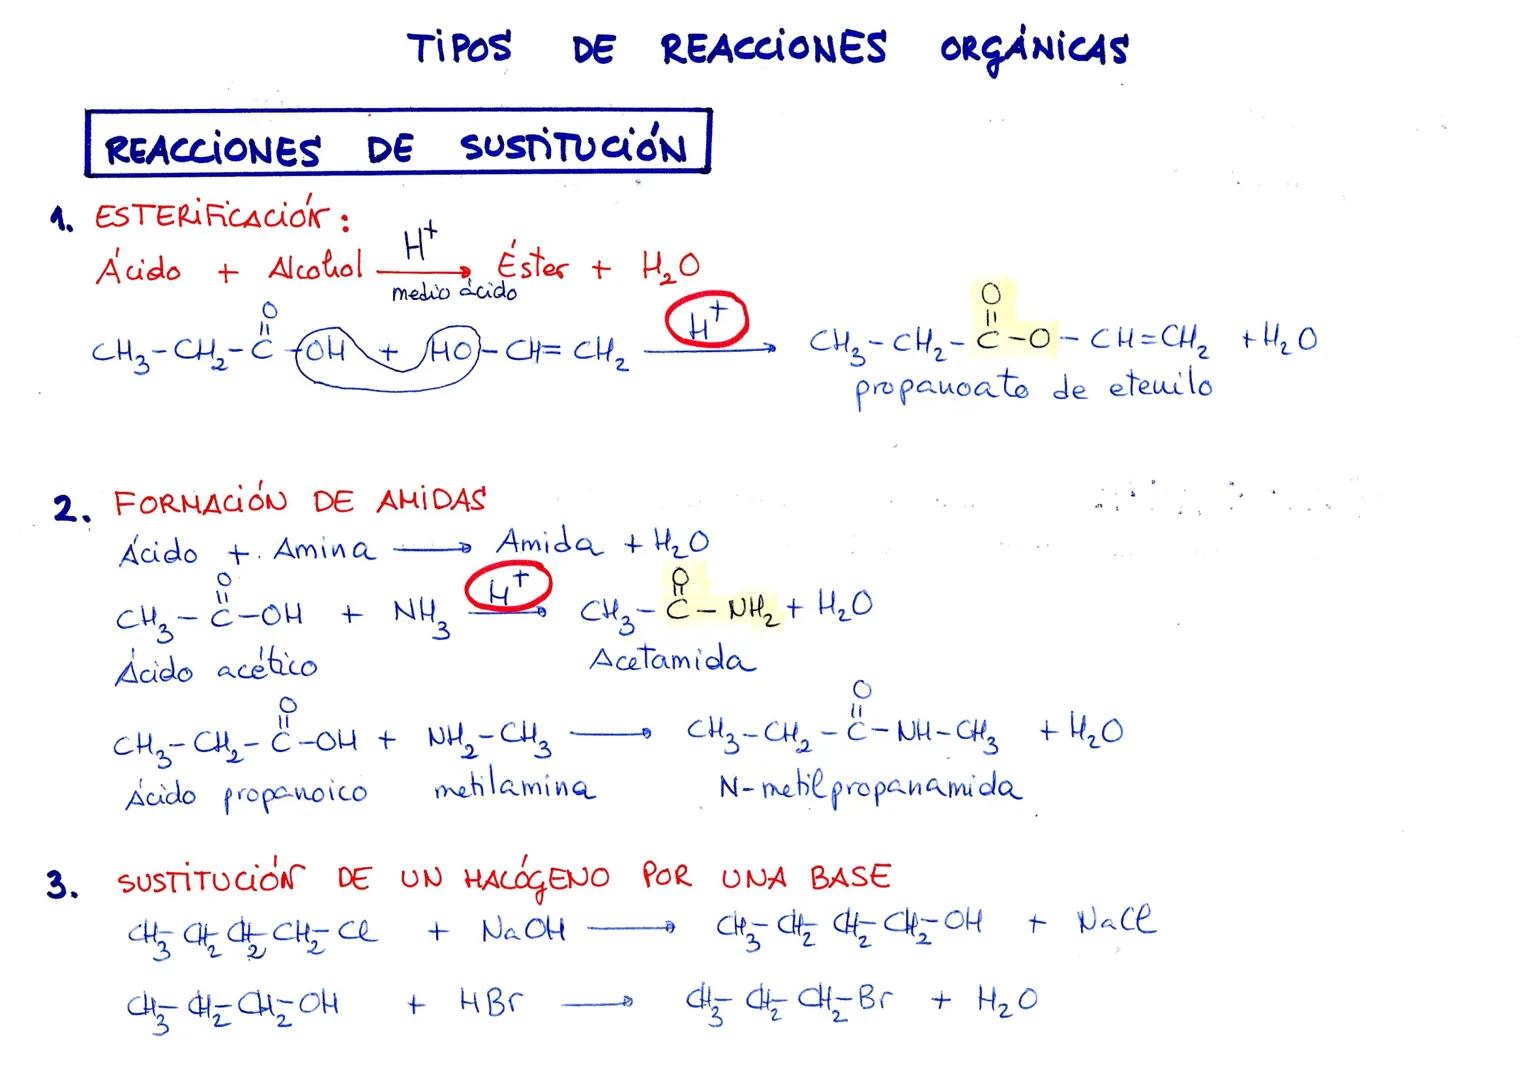 TIPOS DE REACCIONES ORGÁNICAS
REACCIONES DE SUSTITUCIÓN
1. ESTERIFICACIÓN:
Ácido + Alcohol H⁺ → Éster + H₂O
medio ácido
O
||
CH₃-CH₂-C-OH + HO-CH=CH₂ H⁺ → CH₃-CH₂-C-O-CH=CH₂ + H₂O
propanoato de etenilo
2. FORMACIÓN DE AMIDAS
Ácido + Amina → Amida + H₂O
O
||
CH₃-C-OH + NH₃ H⁺ → CH₃-C-NH₂ + H₂O
Ácido acético Acetamida
O
||
CH₃-CH₂-C-OH + NH₂-CH₃ → CH₃-CH₂-C-NH-CH₃ + H₂O
Ácido propanoico metilamina N-metilpropanamida
3. SUSTITUCIÓN DE UN HALÓGENO POR UNA BASE
CH₃-CH₂-CH₂-CH₂-Cl + NaOH → CH₃-CH₂-CH₂-CH₂-OH + NaCl
CH₃-CH₂-CH₂-OH + HBr → CH₃-CH₂-CH₂-Br + H₂O